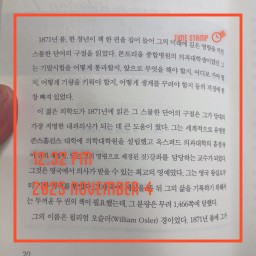 TIME STAMP
1871년 봄, 한 청년이 책 한 권을 집어 들어 그의 미래에 깊은 영향을
스물한 단어의 구절을 읽었다. 몬트리올 종합병원의 의과대학생이었던
는 기말시험을 어떻게 통과할지, 앞으로 무엇을 해야 할지,
지, 어떻게 기량을 키워야 할지, 어떻게 생계를 꾸려야 할지 등의 걱정에
잠 빠져 있었다.
이 젊은 의학도가 1871년에 읽은 그 스물한 단어의 구절은 그가 당대의
가장 저명한 내과의사가 되는 데 큰 도움이 했다. 그는 세계적으로 유명한
존스홉킨스 대학에 의학대학원을 설립했고 옥스퍼드 의과대학의
강좌를 담당하는 교수가 되었다.
그것은 영국에서 의사가 받을 수 있는 최고의 영예였다. 그는 영국
12:32 PM
2023 NOVEMBER 4
뒤 그의 삶을 기록하기
는 두꺼운 두 권의 책이 필요했는데, 그 분량은 무려 1,466쪽에 달했다.
그의 이름은 윌리엄 오슬러(William Osler) 경이다. 1871년 봄에 그가
20